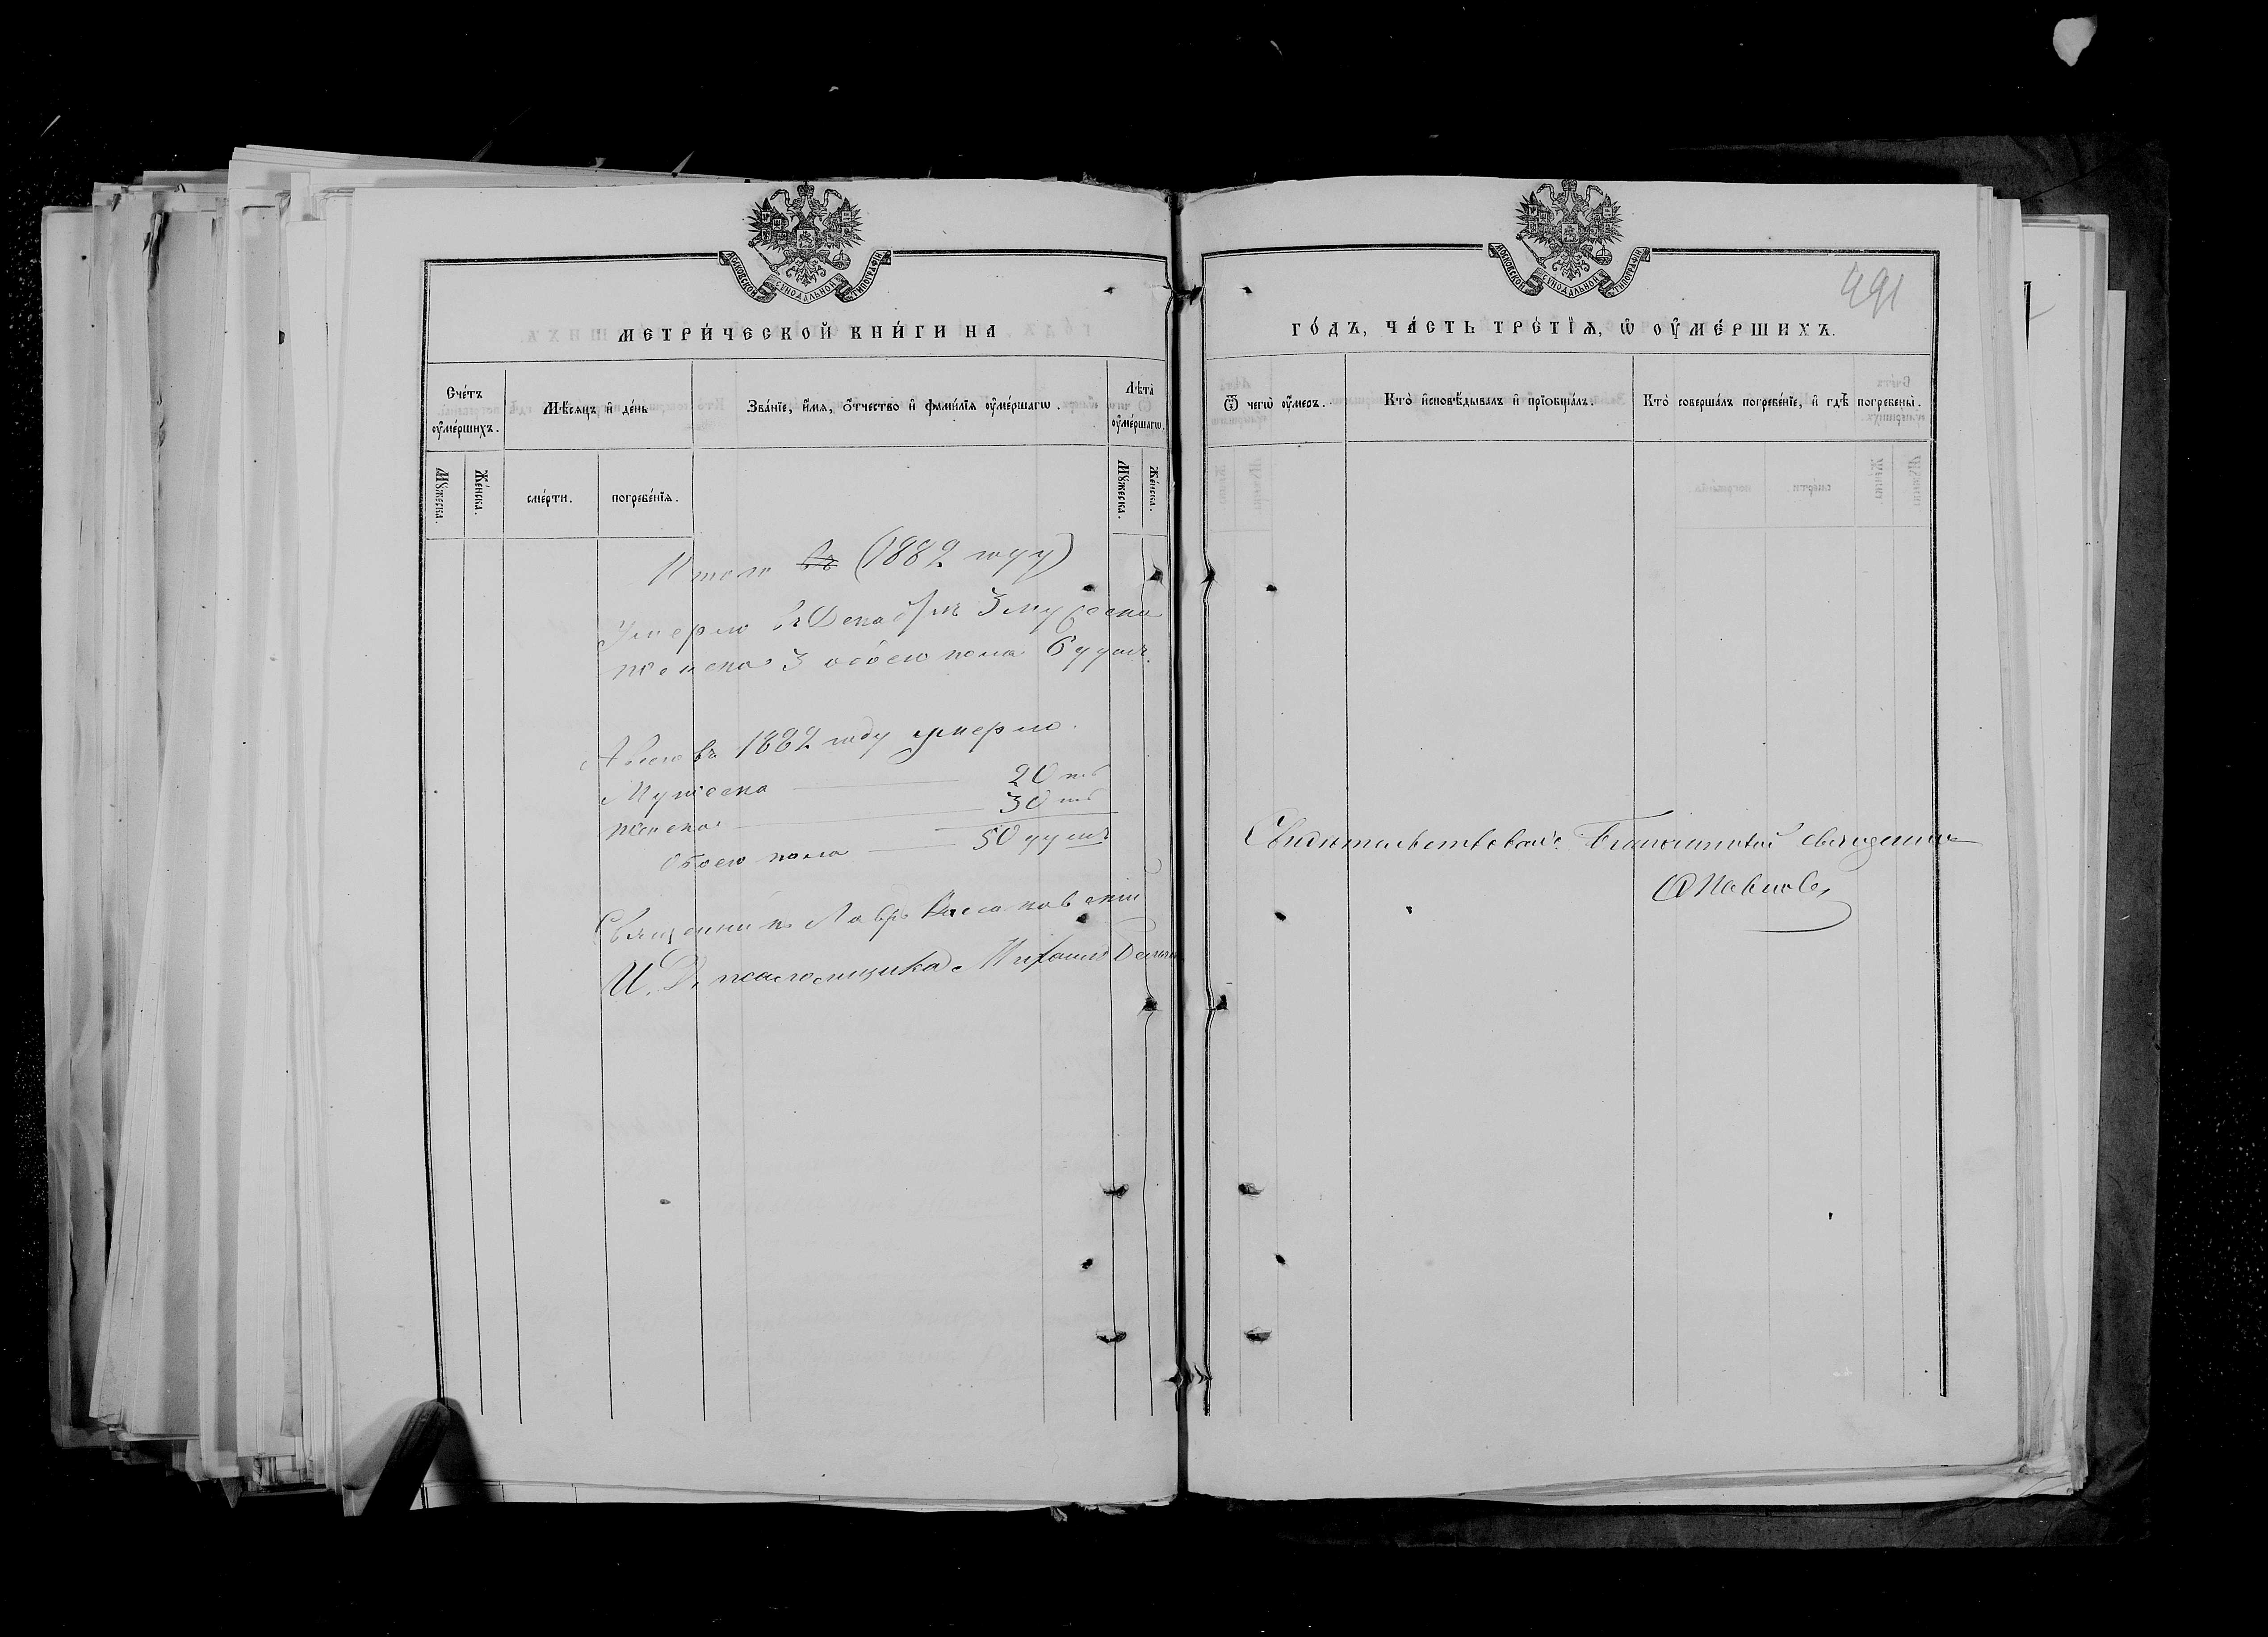 МОСКОВСКОЙ СѴНОДАЛЬНОЙ ТИПОГРАФІИ
МЕТРИ́ЧЕСКОЙ КНИ́ГИ НА
Сче́тъ оу҆ме́ршихъ.
Мѣ́сяцъ и҆ де́нь
Зва́нїе, и҆́мя, ѻ҆́тчество и҆ фами́лїя оу҆ме́ршагѡ.
Лѣ́та оу҆ме́ршагѡ.
Мꙋ́жеска.
Же́нска.
сме́рти.
погребе́нїя.
Мꙋ́жеска.
Же́нска.
Итого въ (1882 году)
Умерло въ Декабрѣ 3 мужеска
женска 3 обоего пола 6 душъ.
А всего въ 1882 году умерло.
Мужеска 20ть
женска 30ть
Обоего пола 50 душъ
Священникъ Лавръ
И. Д. псаломщика Михаилъ
МОСКОВСКОЙ СѴНОДАЛЬНОЙ ТИПОГРАФІИ
491
ГО́ДЪ, ЧА́СТЬ ТРЕ́ТЇѦ, Ѡ҆ ОУ҆МЕ́РШИХЪ.
Ѿ чегѡ̀ оу҆́меръ.
Кто̀ и҆сповѣ́дывалъ и҆ прїобща́лъ.
Кто̀ соверша́лъ погребе́нїе, и҆ гдѣ̀ погребены̀.
Свидѣтельствовалъ Благочинный священникъ
Павловъ